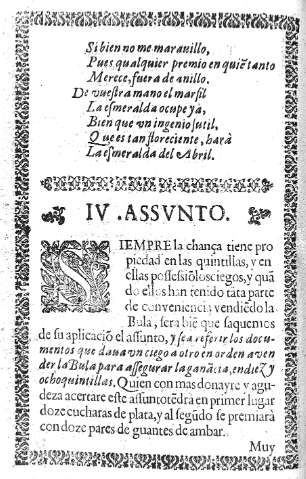 Si bien no me marauillo,
Pues qualquier premio en quiẽ tanto
Merece, fuera de anillo.
De vuestra mano el marfil
La esmeralda ocupe ya,
Bien que vn ingenio sutil,
Que es tan floreciente, harà
La esmeralda del Abril.
IV. ASSVNTO.
SIEMPRE la chança tiene pro
piedad en las quintillas, y en
ellas possessiõ los ciegos, y quã
do ellos han tenido tãta parte
de conveniencia vendiẽdo la
Bula, serà biẽ que saquemos
de su aplicaciõ el assunto, y sea referir los docu-
mentos que dava vn ciego a otro en orden a ven
der la Bula para assegurar la ganãcia, en diez y
ocho quintillas. Quien con mas donayre y agu-
deza acertare este assunto tẽdrà en primer lugar
doze cucharas de plata, y al segũdo se premiarà
con doze pares de guantes de ambar.
Muy